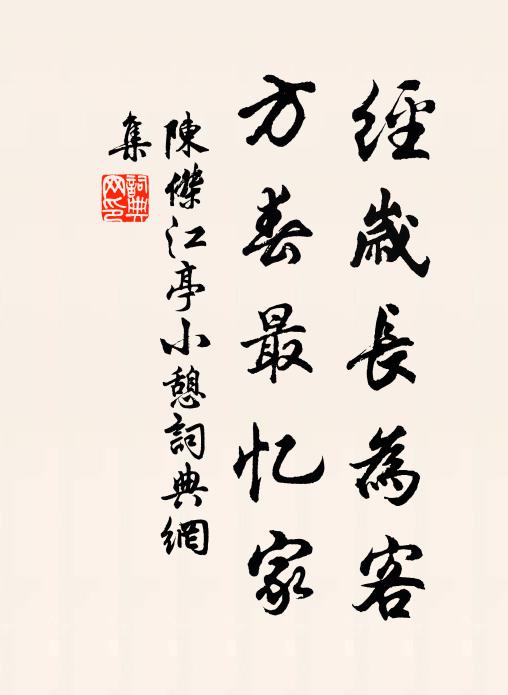 經歲長為客
方春最忆家
陳傑江亭小憩詞典網
集
詞典
网印